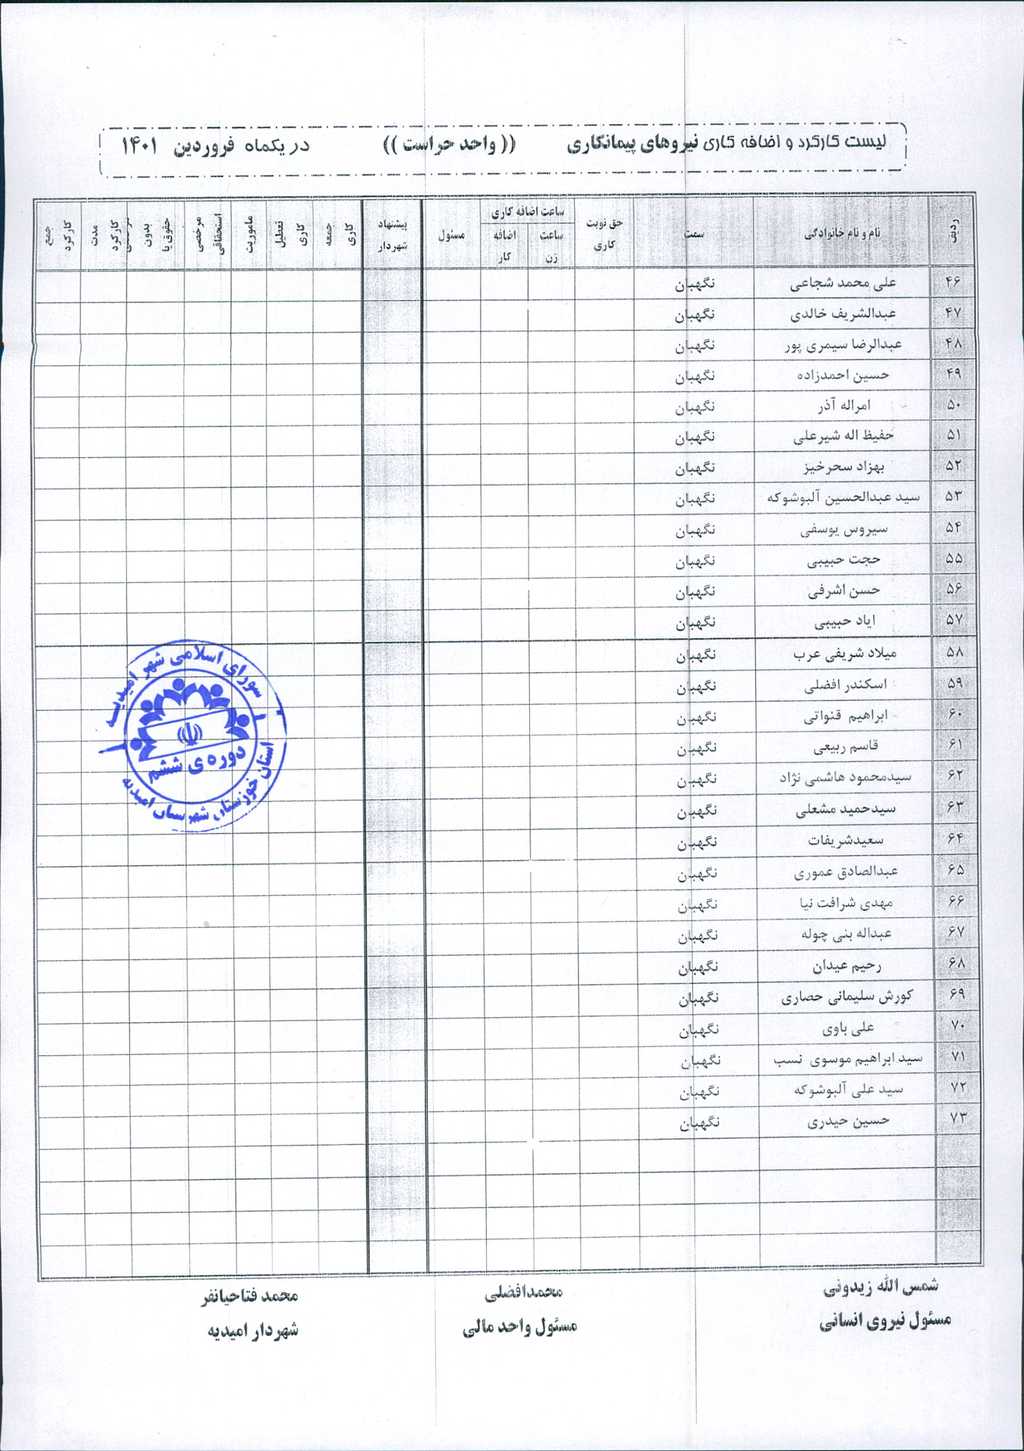 لیست کارکرد و اضافه کاری نیروهای پیمانکاری (( واحد حراست )) در یکماه فروردین ۱۴۰۱
ردیف نام و نام خانوادگی سمت حق نوبت کاری ساعت اضافه کاری ساعت زن اضافه کار مسئول پیشنهاد شهردار جمعه کاری تعطیل کاری ماموریت مرخصی استحقاقی بدون حقوق یا مدت کارکرد جمع کارکرد
۴۶ علی محمد شجاعی نگهبان
۴۷ عبدالشریف خالدی نگهبان
۴۸ عبدالرضا سیمری پور نگهبان
۴۹ حسین احمدزاده نگهبان
۵۰ امراله آذر نگهبان
۵۱ حفیظ اله شیرعلی نگهبان
۵۲ بهزاد سحرخیز نگهبان
۵۳ سید عبدالحسین آلبوشوکه نگهبان
۵۴ سیروس یوسفی نگهبان
۵۵ حجت حبیبی نگهبان
۵۶ حسن اشرفی نگهبان
۵۷ ایاد حبیبی نگهبان
۵۸ میلاد شریفی عرب نگهبان
۵۹ اسکندر افضلی نگهبان
۶۰ ابراهیم قنواتی نگهبان
۶۱ قاسم ربیعی نگهبان
۶۲ سیدمحمود هاشمی نژاد نگهبان
۶۳ سیدحمید مشعلی نگهبان
۶۴ سعیدشریفات نگهبان
۶۵ عبدالصادق عموری نگهبان
۶۶ مهدی شرافت نیا نگهبان
۶۷ عبداله بنی چوله نگهبان
۶۸ رحیم عیدان نگهبان
۶۹ کورش سلیمانی حصاری نگهبان
۷۰ علی باوی نگهبان
۷۱ سید ابراهیم موسوی نسب نگهبان
۷۲ سید علی آلبوشوکه نگهبان
۷۳ حسین حیدری نگهبان
سورای اسلامی شهر امیدیه
دوره ی ششم
استان خوزستان شهرستان امیدیه
شمس الله زیدونی محمدافضلی محمد فتاحیانفر
مسئول نیروی انسانی مسئول واحد مالی شهردار امیدیه